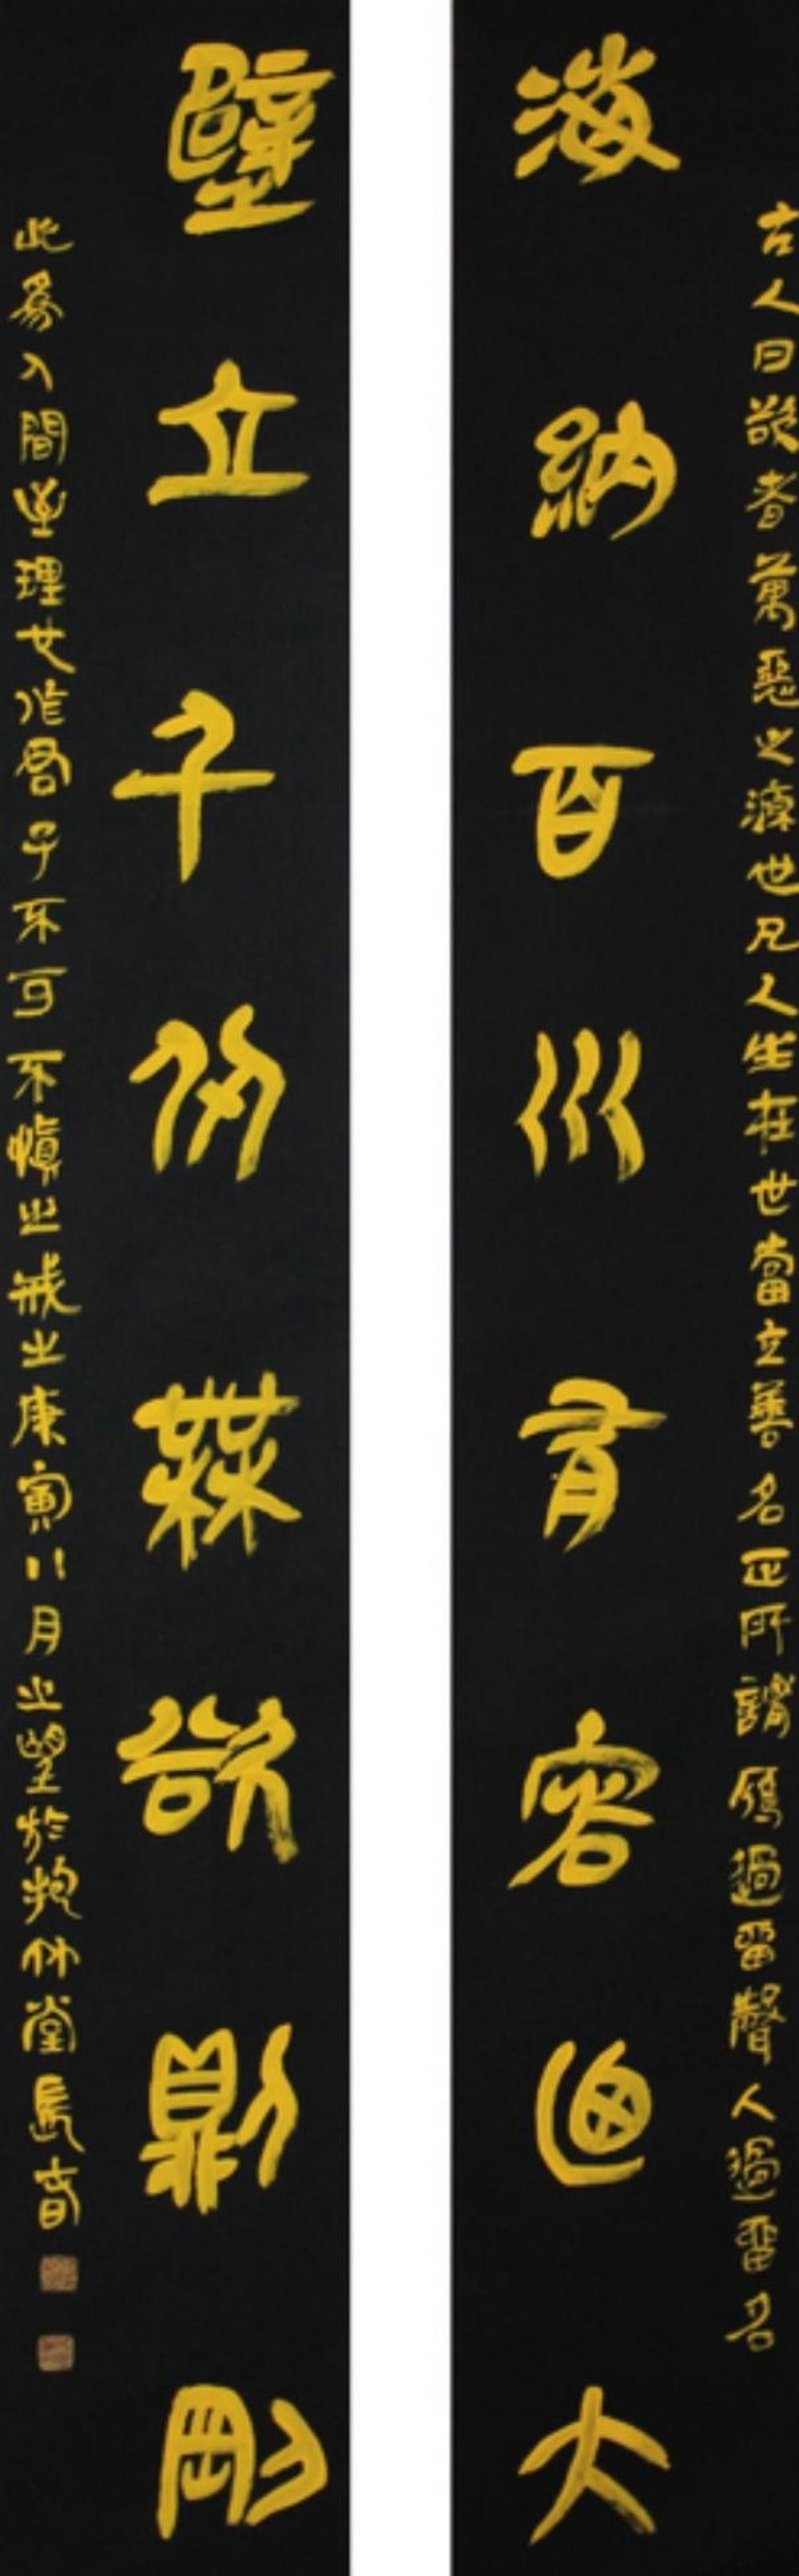 古人曰欲者萬惡之源也凡人生在世當立善名正所謂雁過留聲人過留名
海納百川有容迺大
壁立千仞無欲則剛
此為人間至理女作君子不可不慎之戒之康寅八月之望於抱竹堂長音